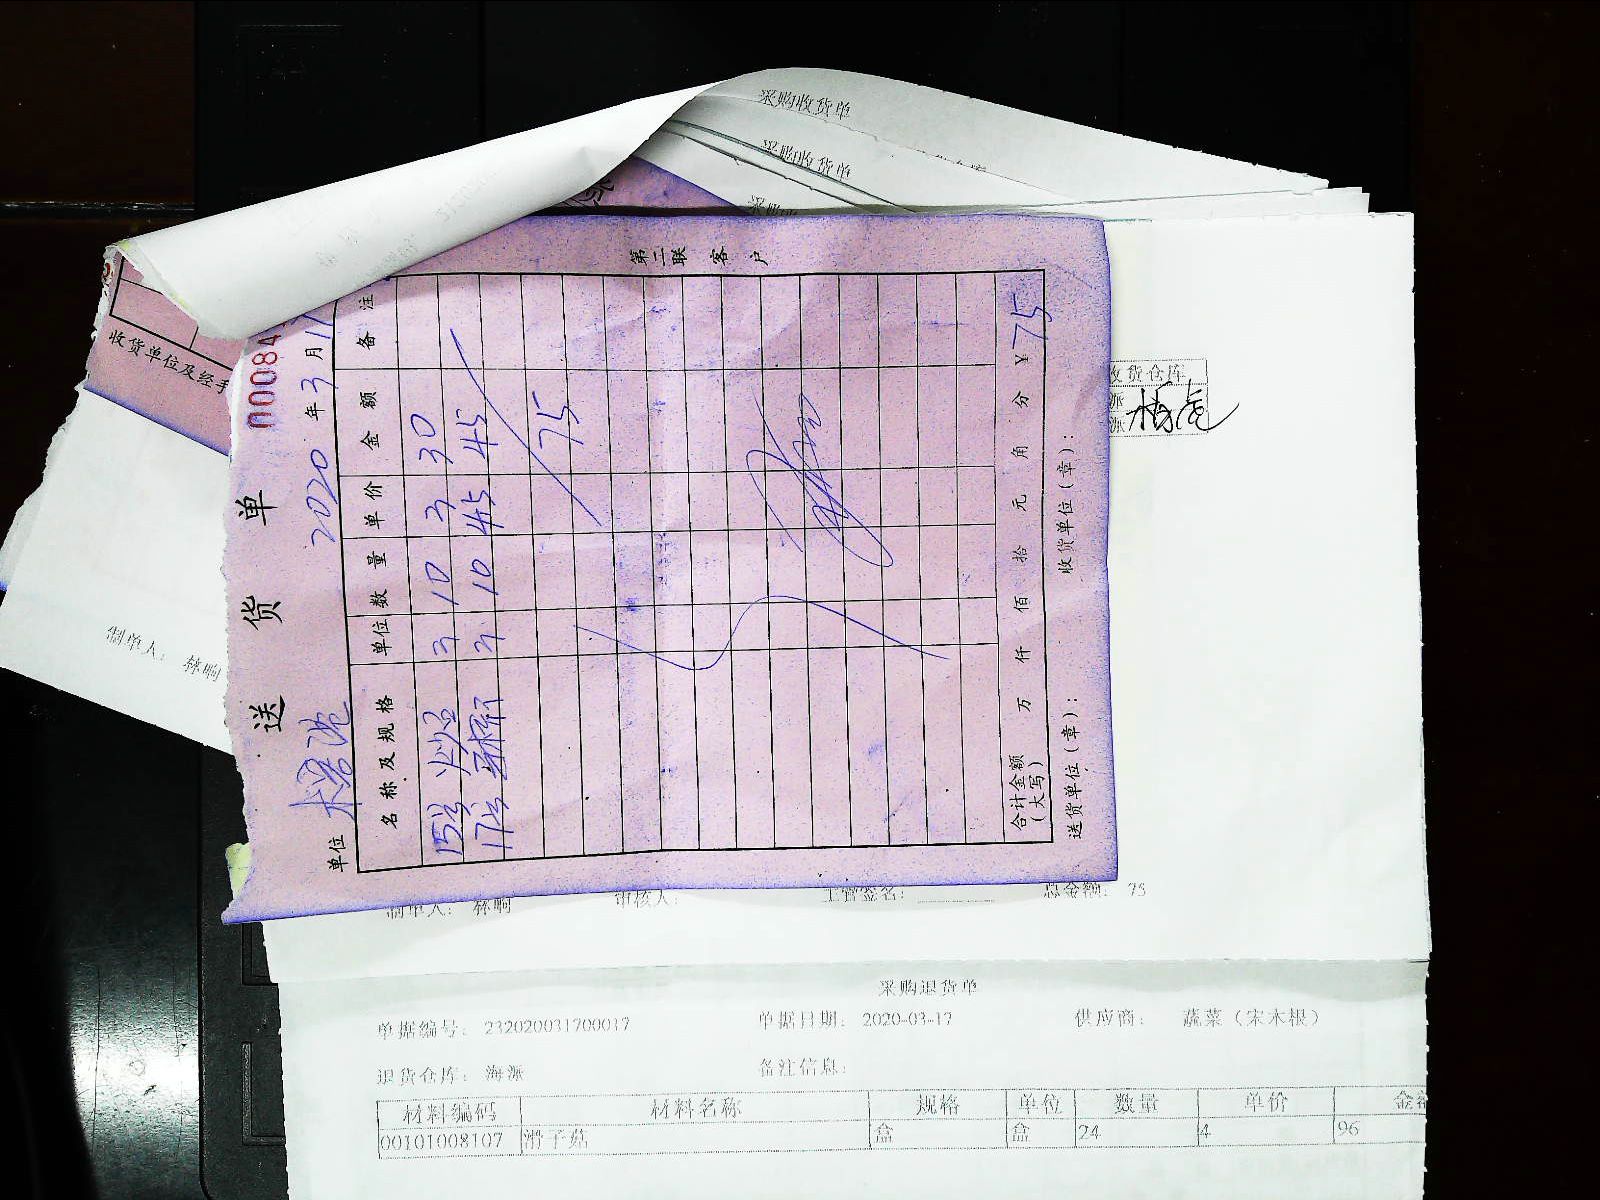 采购收货单
采购收货单
采购
收货单位及经手
制单人: 林晌
送货单
00084
2020年3月1
单位
第二联 客户
名称及规格 单位 数量 单价 金额 备注
15号 斤 10 3 30
17号 斤 10 4.5 45
75
合计金额(大写) 万 仟 佰 拾 元 角 分 ¥75
送货单位(章): 收货单位(章):
收货仓库
派
派
制单人: 林晌 审核人: 主管签名: 总金额: 75
采购退货单
单据编号: 232020031700017 单据日期: 2020-03-17 供应商: 蔬菜(宋木根)
退货仓库: 海派 备注信息:
材料编码 材料名称 规格 单位 数量 单价 金额
00101008107 滑子菇 盒 盒 24 4 96